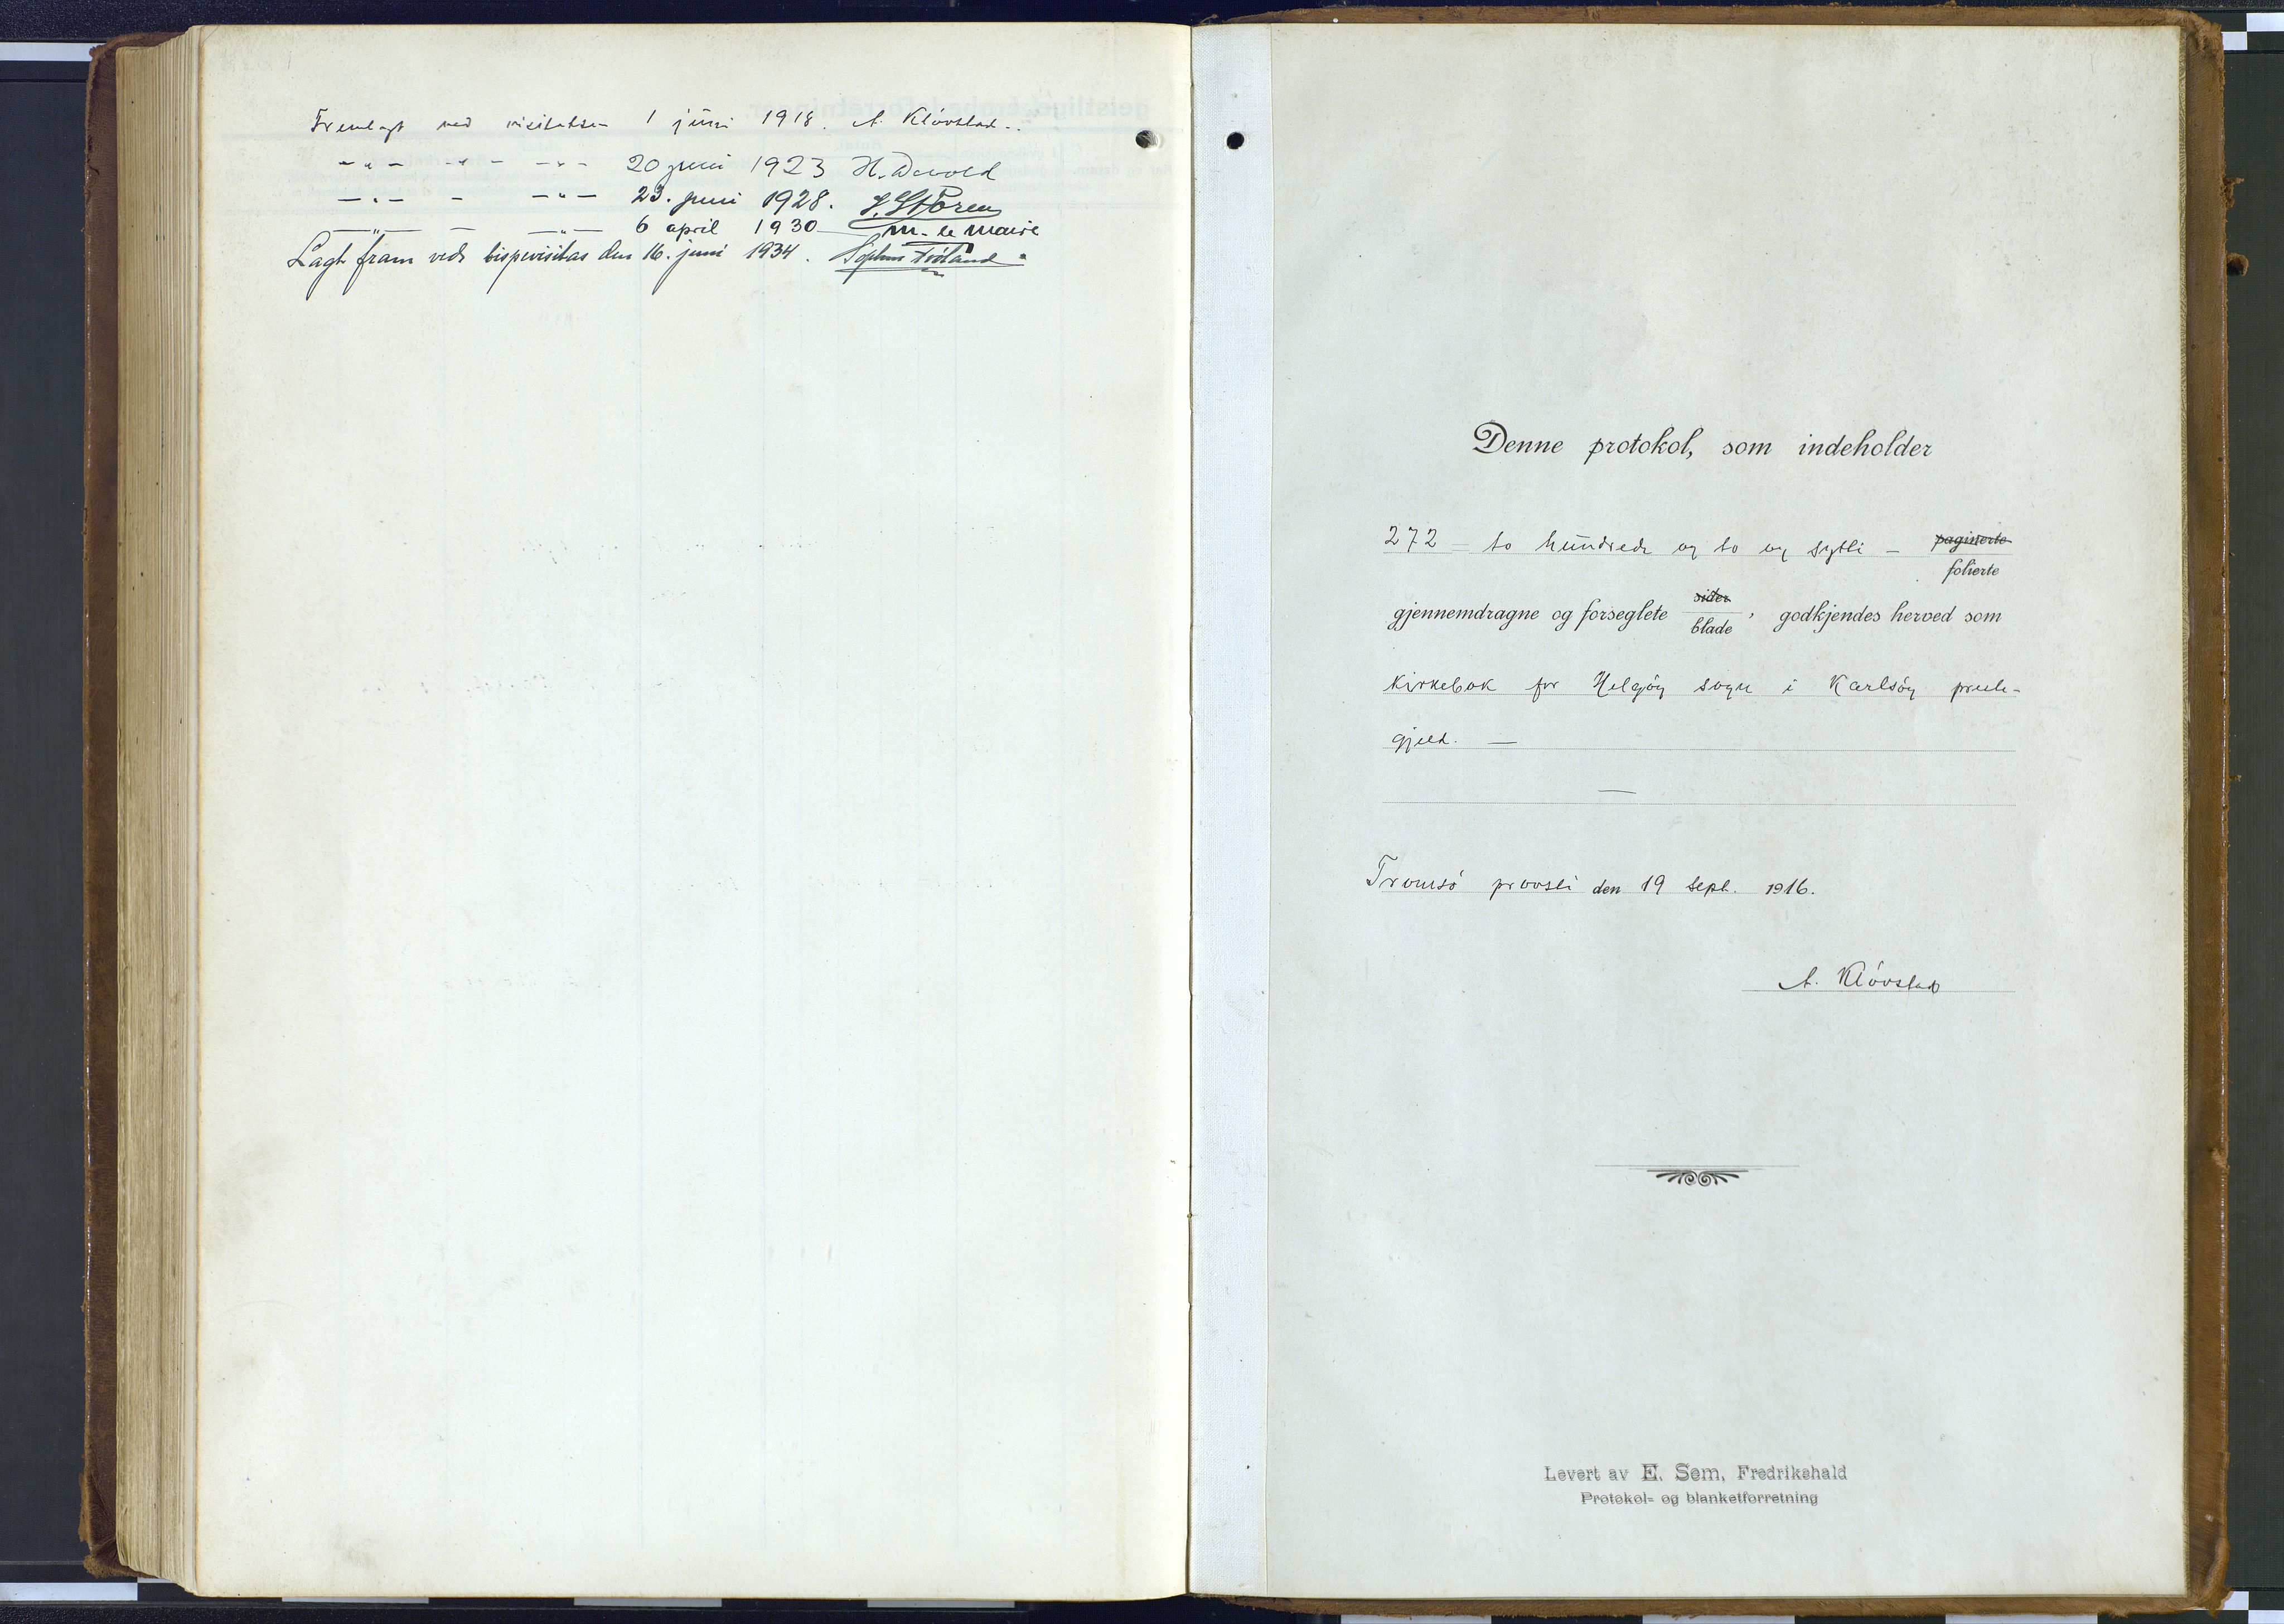 Fremlagt ved visitatsen 1 juni 1918. A. Klövstad.
-"- -"- -"- 20 juni 1923 H. Devold
-"- - -"- 23. juni 1928. J. Støren
-"- - -"- 6 april 1930 M. le Maire
Lagt fram ved bispevisitas den 16. juni 1934. Sophus
Denne protokol, som indeholder
272 - to hundrede og to og sytti - paginerte
folierte
gjennemdragne og forseglete sider
blade, godkjendes herved som
kirkebok for Helgöy sogn i Karlsöy preste-
gjeld. —
—
Tromsö provsti den 19 sept. 1916.
A. Klövstad
Levert av E. Sem, Fredrikshald
Protokol- og blanketforretning